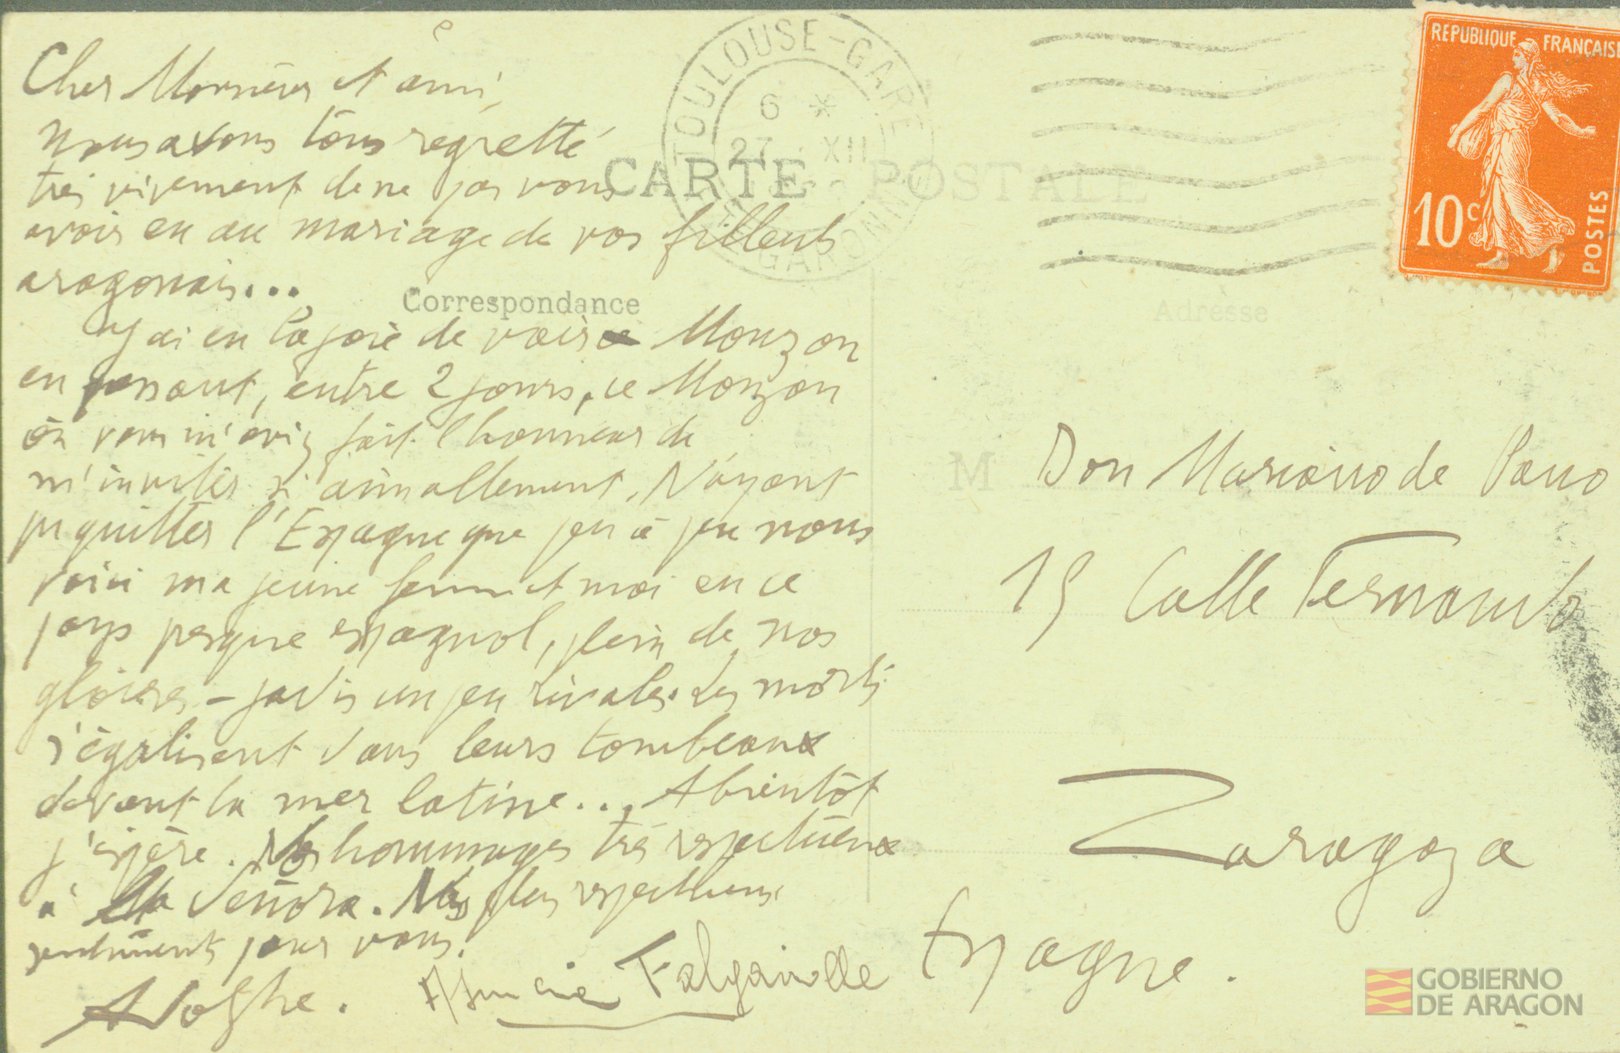 Cher Monsieur et ami,
nous avons tous regretté
très vivement de ne pas vous
avoir eu au mariage de vos filleuls
aragonais...
J'ai eu la joie de voir Monzon
en passant, entre 2 jours, ce Monzon
où vous m'aviez fait l'honneur de
m'inviter si aimablement. N'ayant
pu quitter l'Espagne que peu à peu nous
voici ma jeune femme et moi en ce
pays presque espagnol, plein de nos
gloires – jadis un peu rivales. Les morts
s'égalisent dans leurs tombeaux
devant la mer latine... A bientôt
j'espère. Nos hommages très respectueux
à la Señora. Nos plus respectueux
sentiments pour vous.
Adolphe. Falgairolle
TOULOUSE-GARE
6 *
27 XII
HTE GARONNE
CARTE POSTALE
Correspondance
Adresse
REPUBLIQUE FRANÇAISE
10c
POSTES
M Don Mariano de Pano
19 Calle Fernando
Zaragoza
Espagne.
GOBIERNO
DE ARAGON